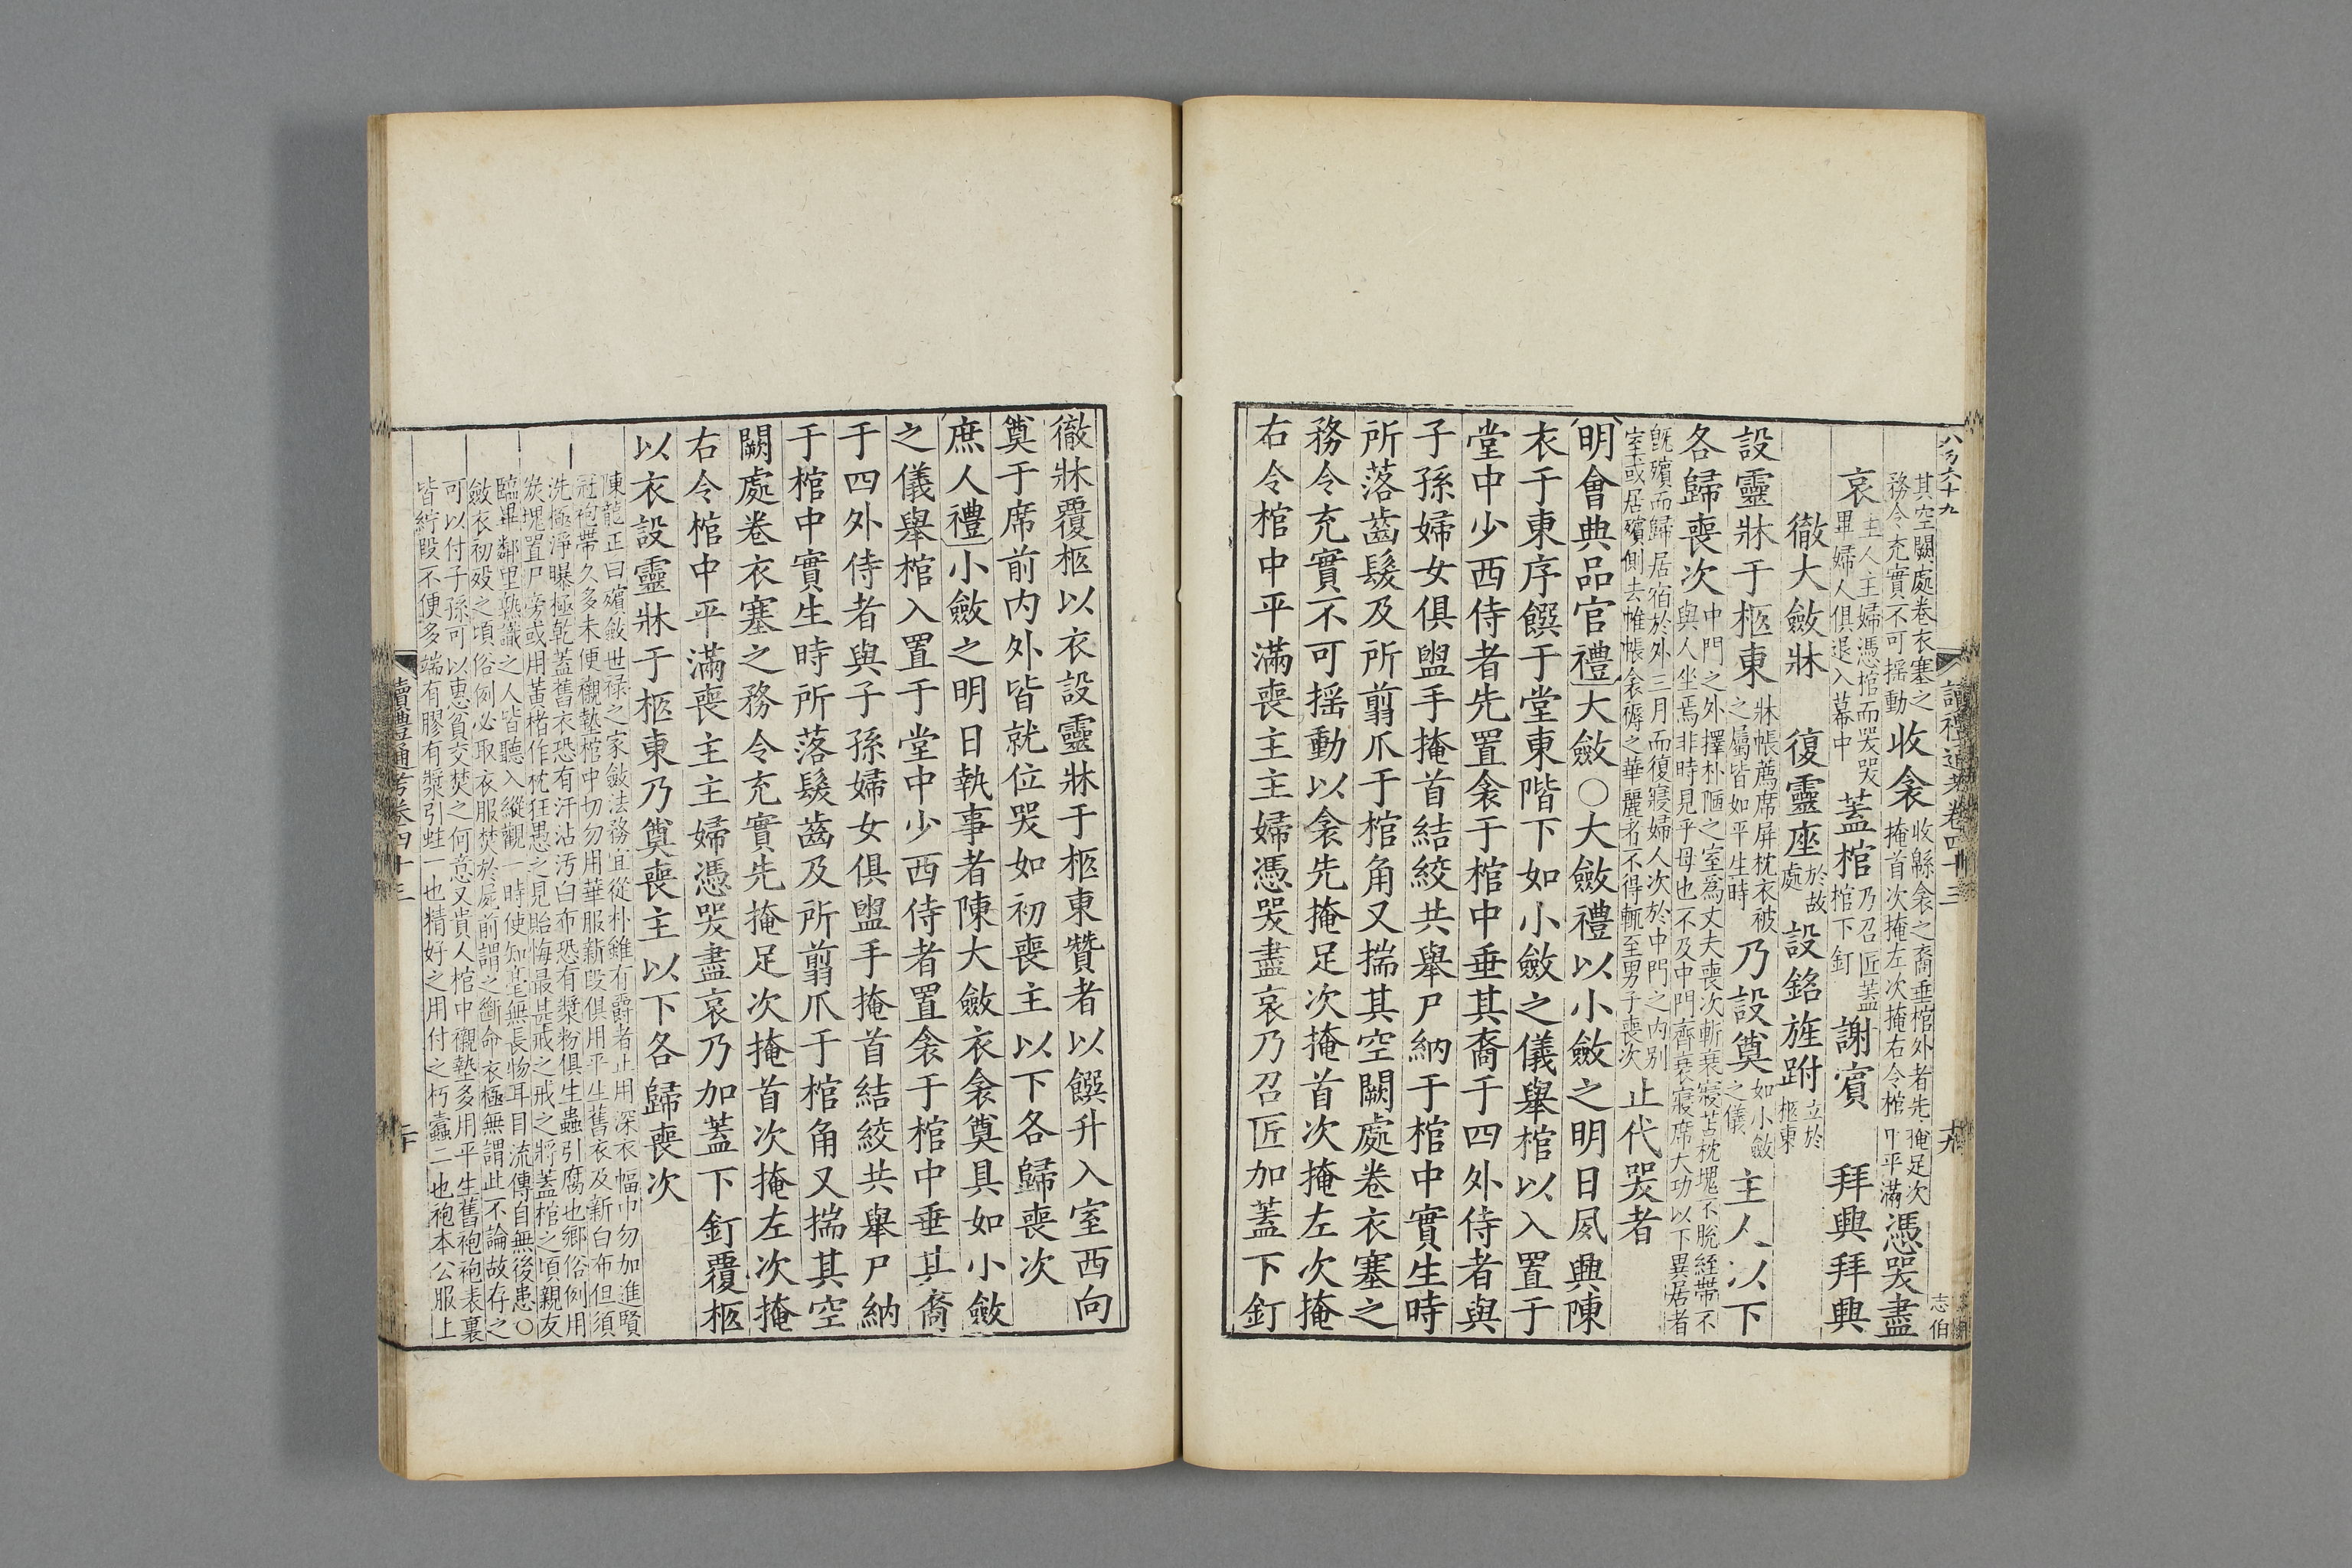 八万六十九
讀禮通考卷四十三
十九
志伯
其空闕處卷衣塞之
務令充實不可揺動
收衾
收緜衾之裔垂棺外者先掩足次
掩首次掩左次掩右令棺中平滿
憑哭盡
哀
主人主婦憑棺而哭哭
畢婦人俱退入幕中
蓋棺
乃召匠蓋
棺下釘
謝賔　拜興拜興
徹大斂牀　復靈座
於故
處
設銘旌跗
立於
柩東
設靈牀于柩東
牀帳薦席屏枕衣被
之屬皆如平生時
乃設奠
如小斂
之儀
主人以下
各歸喪次
中門之外擇朴陋之室爲丈夫喪次斬衰寢苫枕塊不脫絰帶不
與人坐焉非時見乎母也不及中門齊衰寢席大功以下異居者
既殯而歸居宿於外三月而復寢婦人次於中門之内别
室或居殯側去帷帳衾褥之華麗者不得輒至男子喪次
止代哭者
明會典品官禮大斂○大斂禮以小斂之明日夙興陳
衣于東序饌于堂東階下如小斂之儀舉棺以入置于
堂中少西侍者先置衾于棺中垂其裔于四外侍者與
子孫婦女俱盥手掩首結絞共舉尸納于棺中實生時
所落齒髮及所翦爪于棺角又揣其空闕處卷衣塞之
務令充實不可揺動以衾先掩足次掩首次掩左次掩
右令棺中平滿喪主主婦憑哭盡哀乃召匠加蓋下釘
徹牀覆柩以衣設靈牀于柩東贊者以饌升入室西向
奠于席前内外皆就位哭如初喪主以下各歸喪次
庶人禮小斂之明日執事者陳大斂衣衾奠具如小斂
之儀舉棺入置于堂中少西侍者置衾于棺中垂其裔
于四外侍者與子孫婦女俱盥手掩首結絞共舉尸納
于棺中實生時所落髮齒及所翦爪于棺角又揣其空
闕處卷衣塞之務令充實先掩足次掩首次掩左次掩
右令棺中平滿喪主主婦憑哭盡哀乃加蓋下釘覆柩
以衣設靈牀于柩東乃奠喪主以下各歸喪次
陳龍正曰殯斂世禄之家斂法務宜從朴雖有爵者止用深衣幅巾勿加進賢
冠袍帶久多未便襯墊棺中切勿用華服新段俱用平生舊衣及新白布但須
洗極淨曝極乾蓋舊衣恐有汗沾汚白布恐有漿粉俱生蟲引腐也鄉俗例用
炭塊置尸旁或用黃楮作枕狂愚之見貽悔最甚戒之戒之將蓋棺之頃親友
臨畢鄰里熟識之人皆聽入縱觀一時使知毫無長物耳目流傳自無後患○
斂衣初歿之頃俗例必取衣服焚於屍前謂之斷命衣極無謂此不論故存之
可以付子孫可以惠貧交焚之何意又貴人棺中襯墊多用平生舊袍袍表裏
皆紵段不便多端有膠有漿引蛀一也精好之用付之朽蠧二也袍本公服上
讀禮通考卷四十三
二十